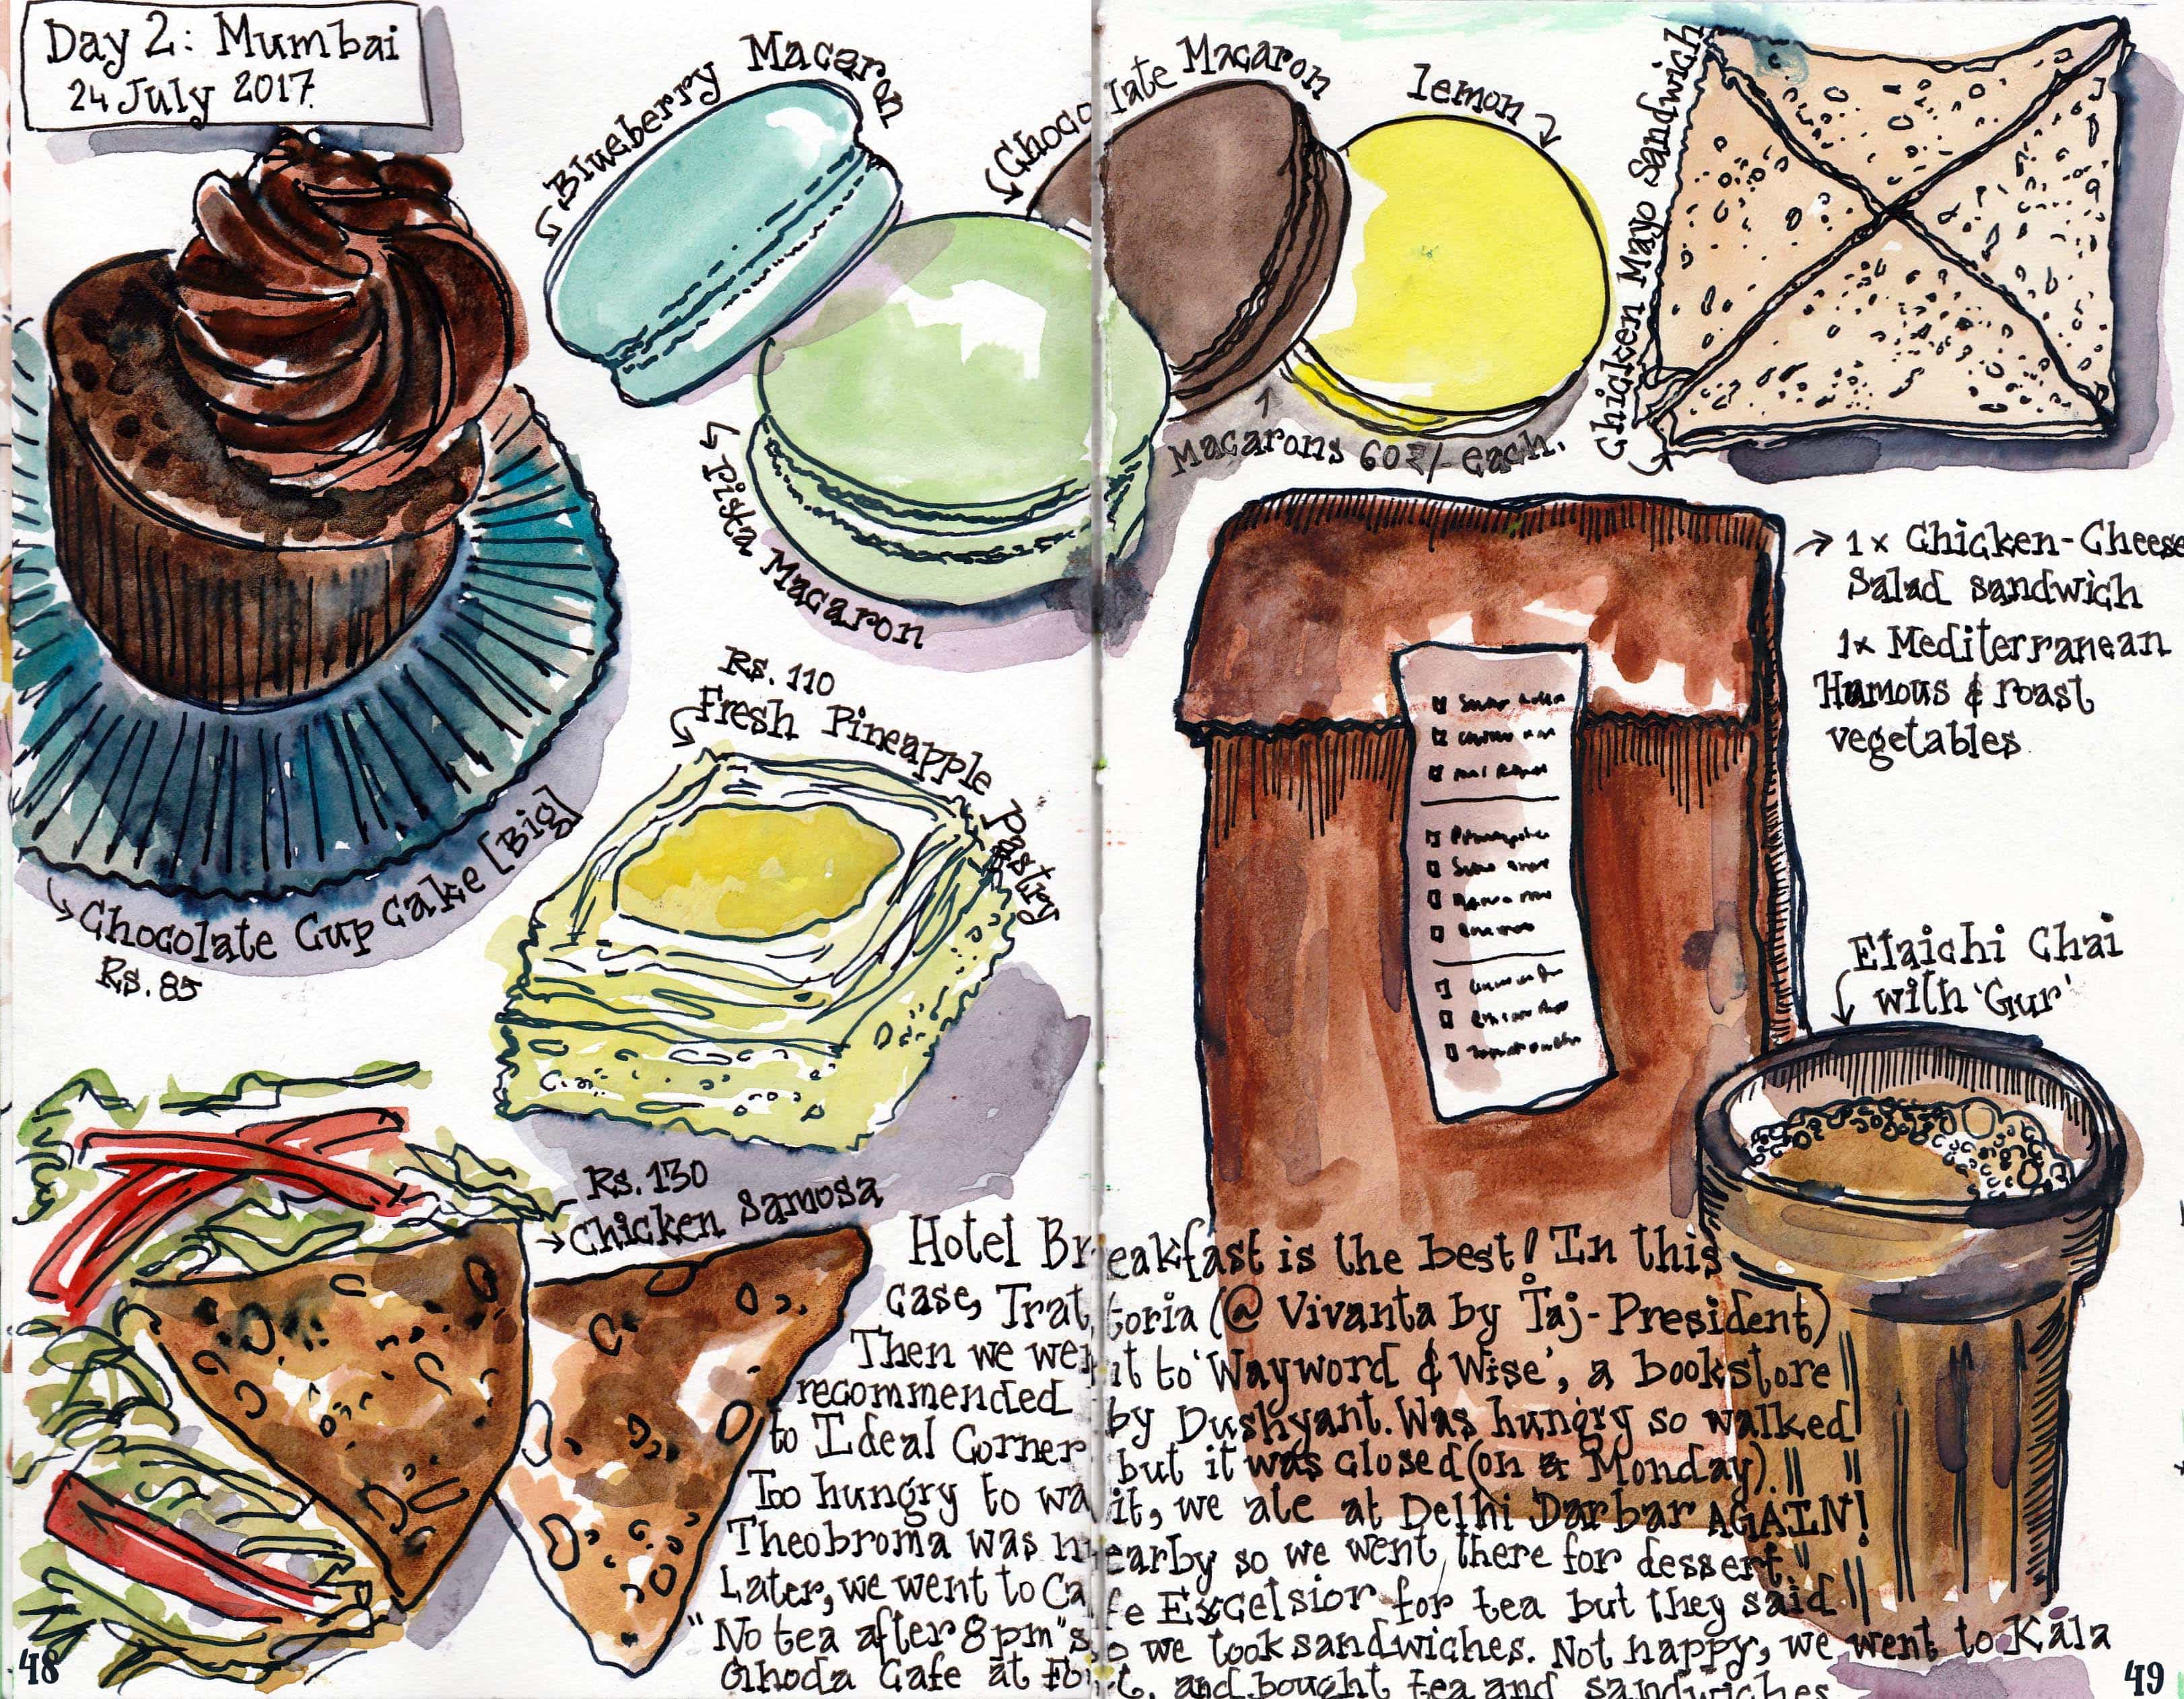 Day 2: Mumbai
24 July 2017
Blueberry Macaron
Chocolate Macaron
lemon
Chicken Mayo Sandwich
Macarons 60₹/- each.
Pista Macaron
→ 1x Chicken-Cheese
Salad sandwich
1x Mediterranean
Humous & roast
vegetables
Rs. 110
Fresh Pineapple Pastry
Chocolate Cup cake [Big]
Rs. 85
Elaichi Chai
with 'Gur'
Rs. 130
→ Chicken Samosa
Hotel Breakfast is the best! In this
case, Trattoria (@ Vivanta by Taj-President)
Then we went to 'Wayword & Wise', a bookstore
recommended by Dushyant. Was hungry so walked
to Ideal Corner but it was closed (on a Monday).
Too hungry to wait, we ate at Delhi Darbar AGAIN!
Theobroma was nearby so we went there for dessert.
Later, we went to Cafe Excelsior for tea but they said
"No tea after 8pm" so we took sandwiches. Not happy, we went to Kala
Ghoda Cafe at Fort, and bought tea and sandwiches
48
49